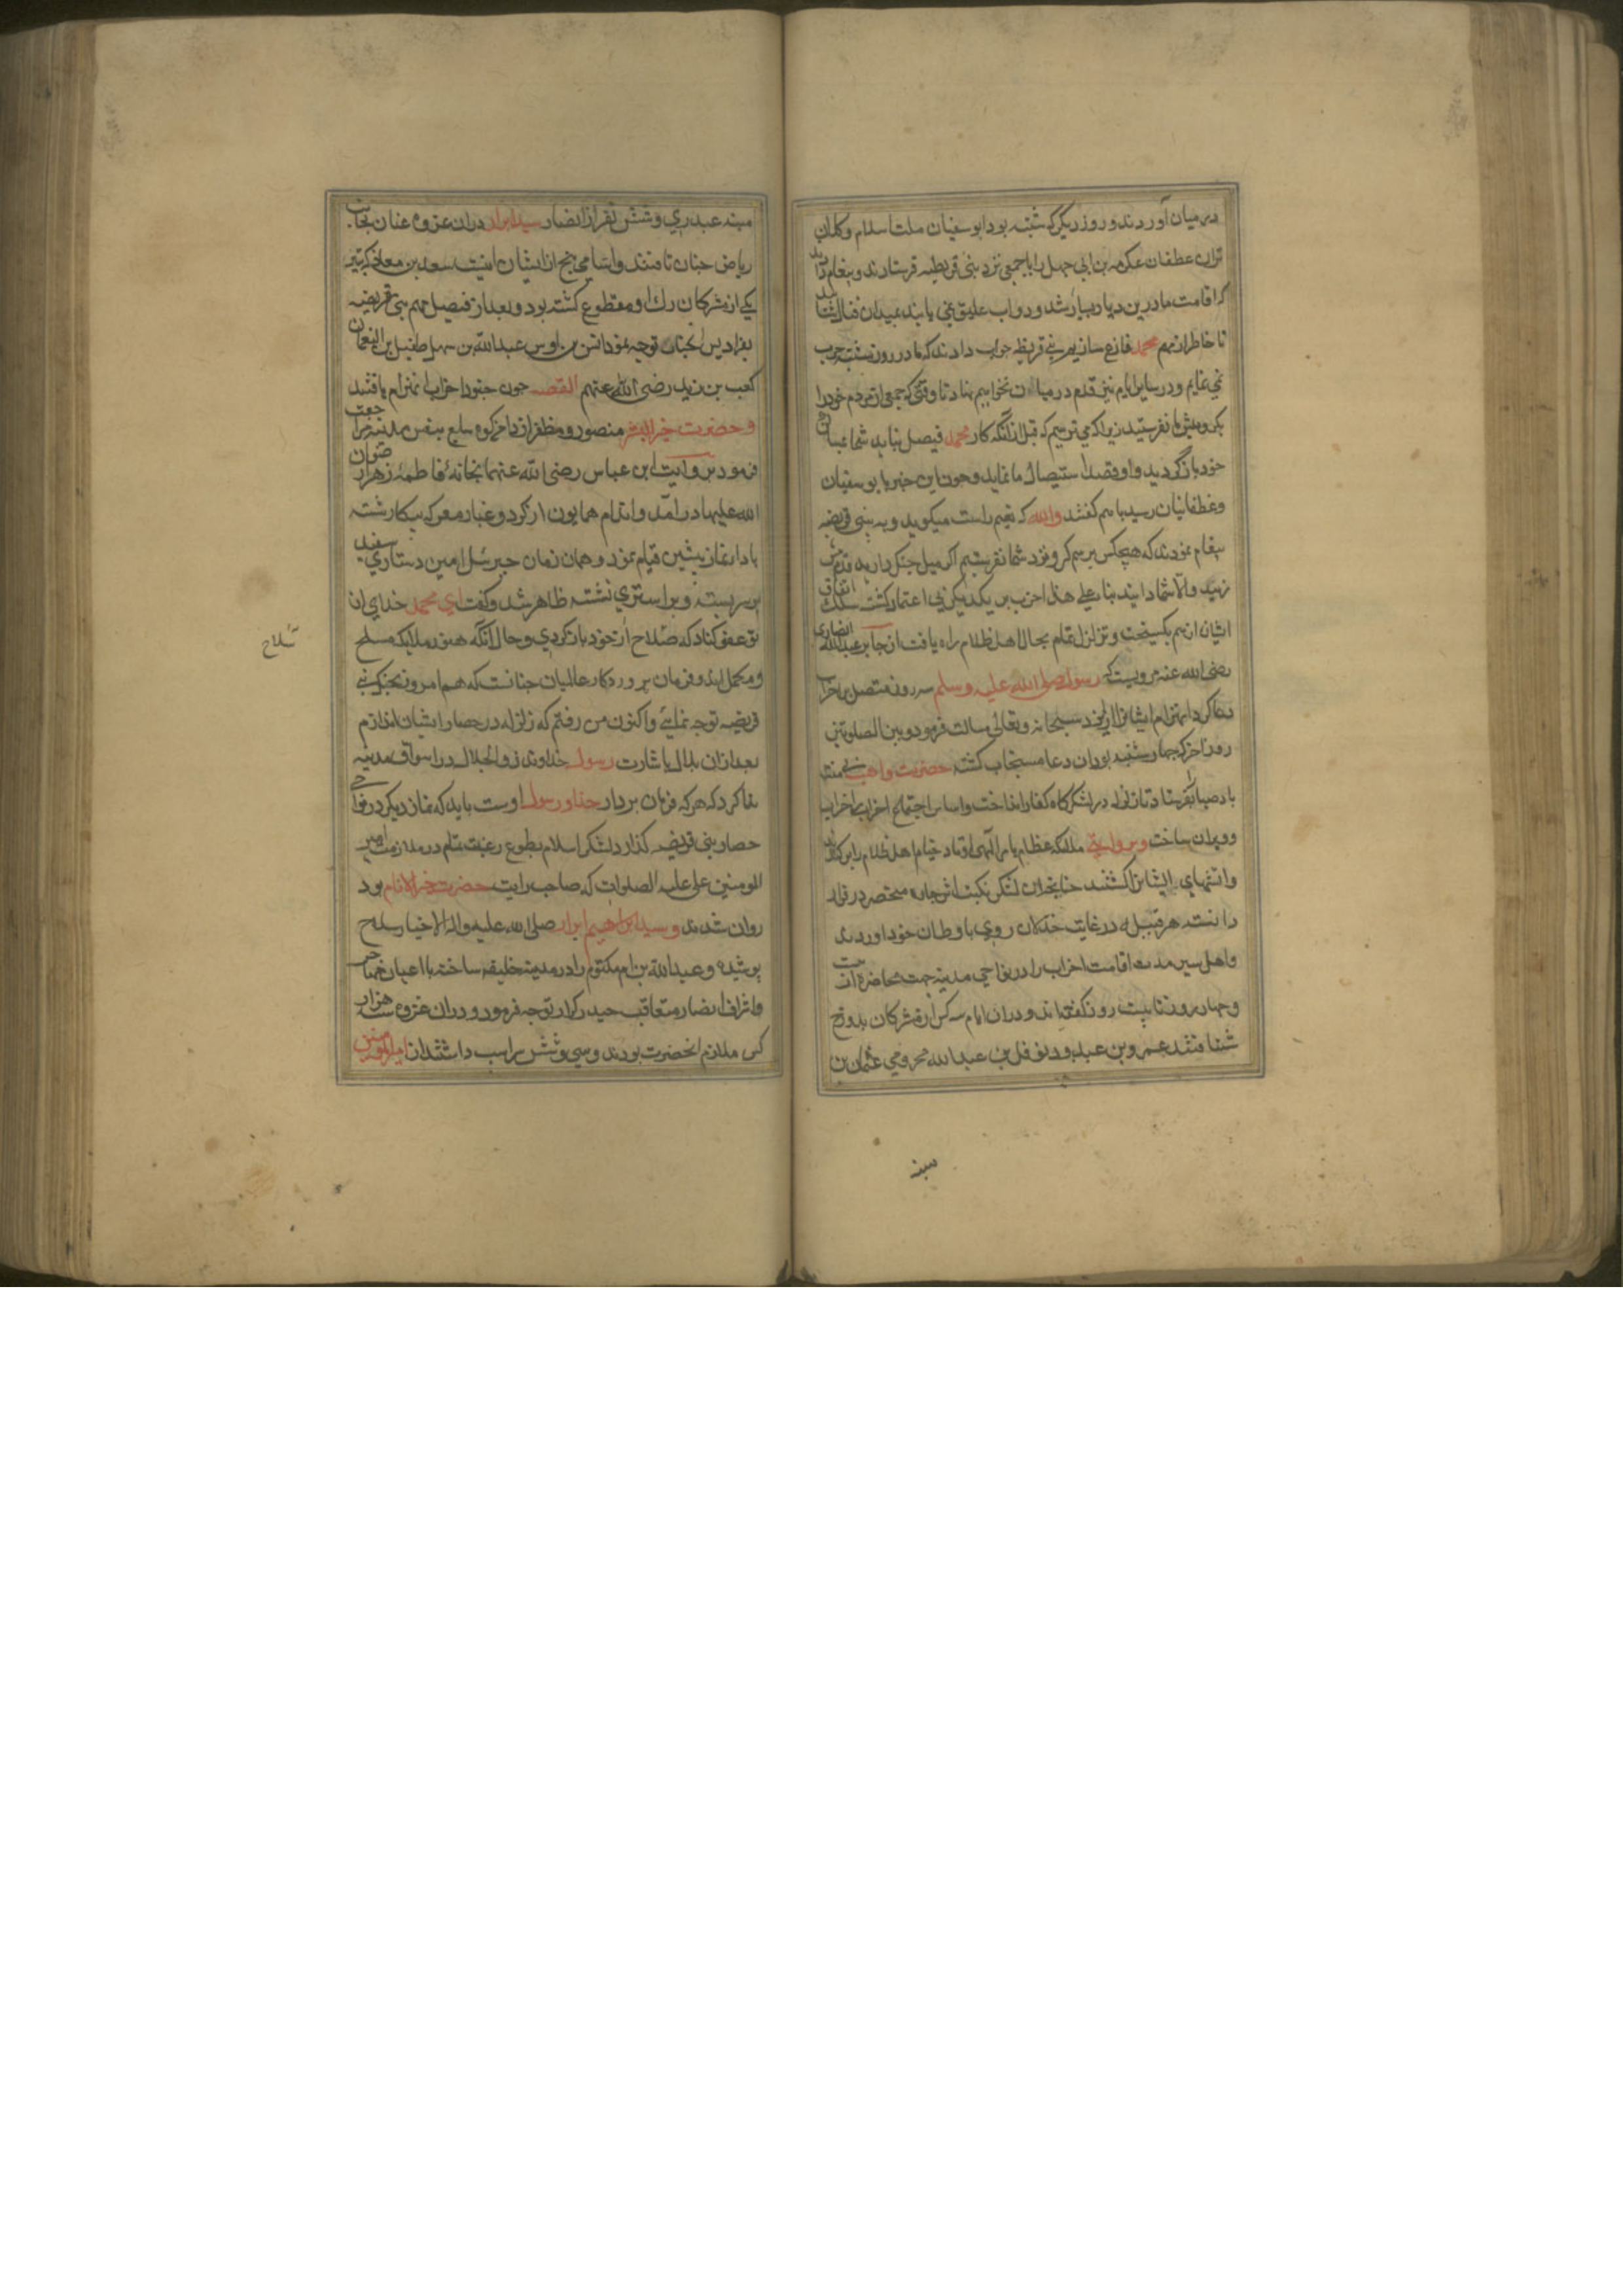 در میان آوردند و روز دیگر که شنبه بود ابو سفیان ملت اسلام و کلان
تران عطفان عکرمه بن ابی جهل را با جمعی نزد بنی قریظه فرستادند و پیغام دادند
که اقامت ما درین دیار بسیار شد و دواب علیق نمی یابند بمیدان قتال شتابید
تا خاطر از مهم محمد فارغ سازیم بنی قریظه جواب دادند که ما در روز شنبه حرب
نمی نمایم و در سایر ایام نیز قدم در میان نخواهیم نهاد تا وقتی که جمعی از مردم خود را
بکرو پیش ما نفرستید زیرا که می ترسیم که قبل از آنکه کار محمد فیصل نیابد شما
خود باز گردید و او قصد استیصال ما نماید و چون این خبر با بو سفیان
و غطفانیان رسید با هم گفتند والله که نعیم راست میگوید و به بنی قریضه
پیغام نمودند که هیچکس برسم کرو نزد شما نفرستیم اگر میل جنگ دارید قدم پیش
نهید والا شما دانید بنا بر علی هذا احزاب بر یکدیگر بی اعتماد گشت سلک اتفاق
ایشان از هم بکسیخت و تزلزل تمام بحال اهل ظلام راه یافت از جابر عبدالله انصاری
رضی الله عنه مرویست که رسول صلی الله علیه وسلم سه روز متصل بر احزاب
دعا کرد انهزام ایشان از ایزد سبحانه و تعالی مسالت فرمود و بین الصلوتین
روز آخر که چهارشنبه بود ان دعا مستجاب گشته حضرت واهب بی منت
باد صبا بفرستاد تا زلزله در لشکرگاه کفار انداخت و اساس اجتماع احزاب را خراب
و ویران ساخت و بروایتی ملائکه عظام بامر الهی اوتاد خیام اهل ظلام را بر کندند
و آتشهای ایشان را کشتند چنانچه ان لشکر نکبت اثر چاره منحصر در فرار
دانسته هر قبیله در غایت خذلان روی باوطان خود اوردند
و اهل سیر مدت اقامت احزاب را در نواحی مدینه جهت محاضره ان بیست
و چهار روز تا بیست روز گفته اند و دران ایام سه کس از مشرکان بدوزخ
شتافتند عمرو بن عبدود نوفل بن عبدالله مخزومی عثمان بن
منبه
منبه عبدری و شش نفر از انصار سید ابرار دران غزوه عنان بجانب
ریاض جنان تافتند و اسامی پنج از ایشان اینست سعد بن معاذ که بتیر
یکی از مشرکان رک او مقطوع گشته بود و بعد از فیصل مهم بنی قریضه
بفرادیس الجنان توجه نمود انس بن اوس عبدالله بن سهل طفیل بن النعمان
کعب بن زید رضی الله عنهم القصه چون جنود احزاب انهزام یافتند
و حضرت خیر البشر منصور و مظفر از دامن کوه سلع بنفس مدینه مراجعت
فرمود بروایت ابن عباس رضی الله عنهما بخانه فاطمه زهرا رضوان
الله علیها درآمد و اندام همایون از گرد و غبار معرکه پیکار شسته
بادای نماز پیشین قیام نمود و همان زمان جبرئیل امین دستاری سفید
بر سر بسته و بر استری نشسته ظاهر شد و گفت ای محمد خدای از
تو عفو کناد که صلاح از خود باز کردی و حال آنکه هنوز ملایکه مسلح
سلاح
و مکمل اند و فرمان پروردکار عالمیان چنانست که هم امروز بجنگ بنی
قریضه توجه نمائی و اکنون من رفتم که زلزله در حصار ایشان اندازم
بعد ازان بلال باشارت رسول خداوند ذوالجلال در اسواق مدینه
ندا کرد که هر که فرمان بردار خدا و رسول اوست باید که نماز دیگر در نواحی
حصار بنی قریضه گذارد لشکر اسلام بطوع رغبت تمام در ملازمت امیر
المومنین علی علیه الصلوات که صاحب رایت حضرت خیر الانام بود
روان شدند و سید ابراهیم ابرار صلی الله علیه واله الاخیار سلاح
پوشیده و عبدالله بن ام مکتوم را در مدینه خلیفه ساخته با اعیان مهاجر
و اشراف انصار متعاقب حیدر کرار توجه فرمود و دران غزوه سه هزار
کس ملازم انحضرت بودند و سی و شش سر اسب داشتند از امیر المومنین